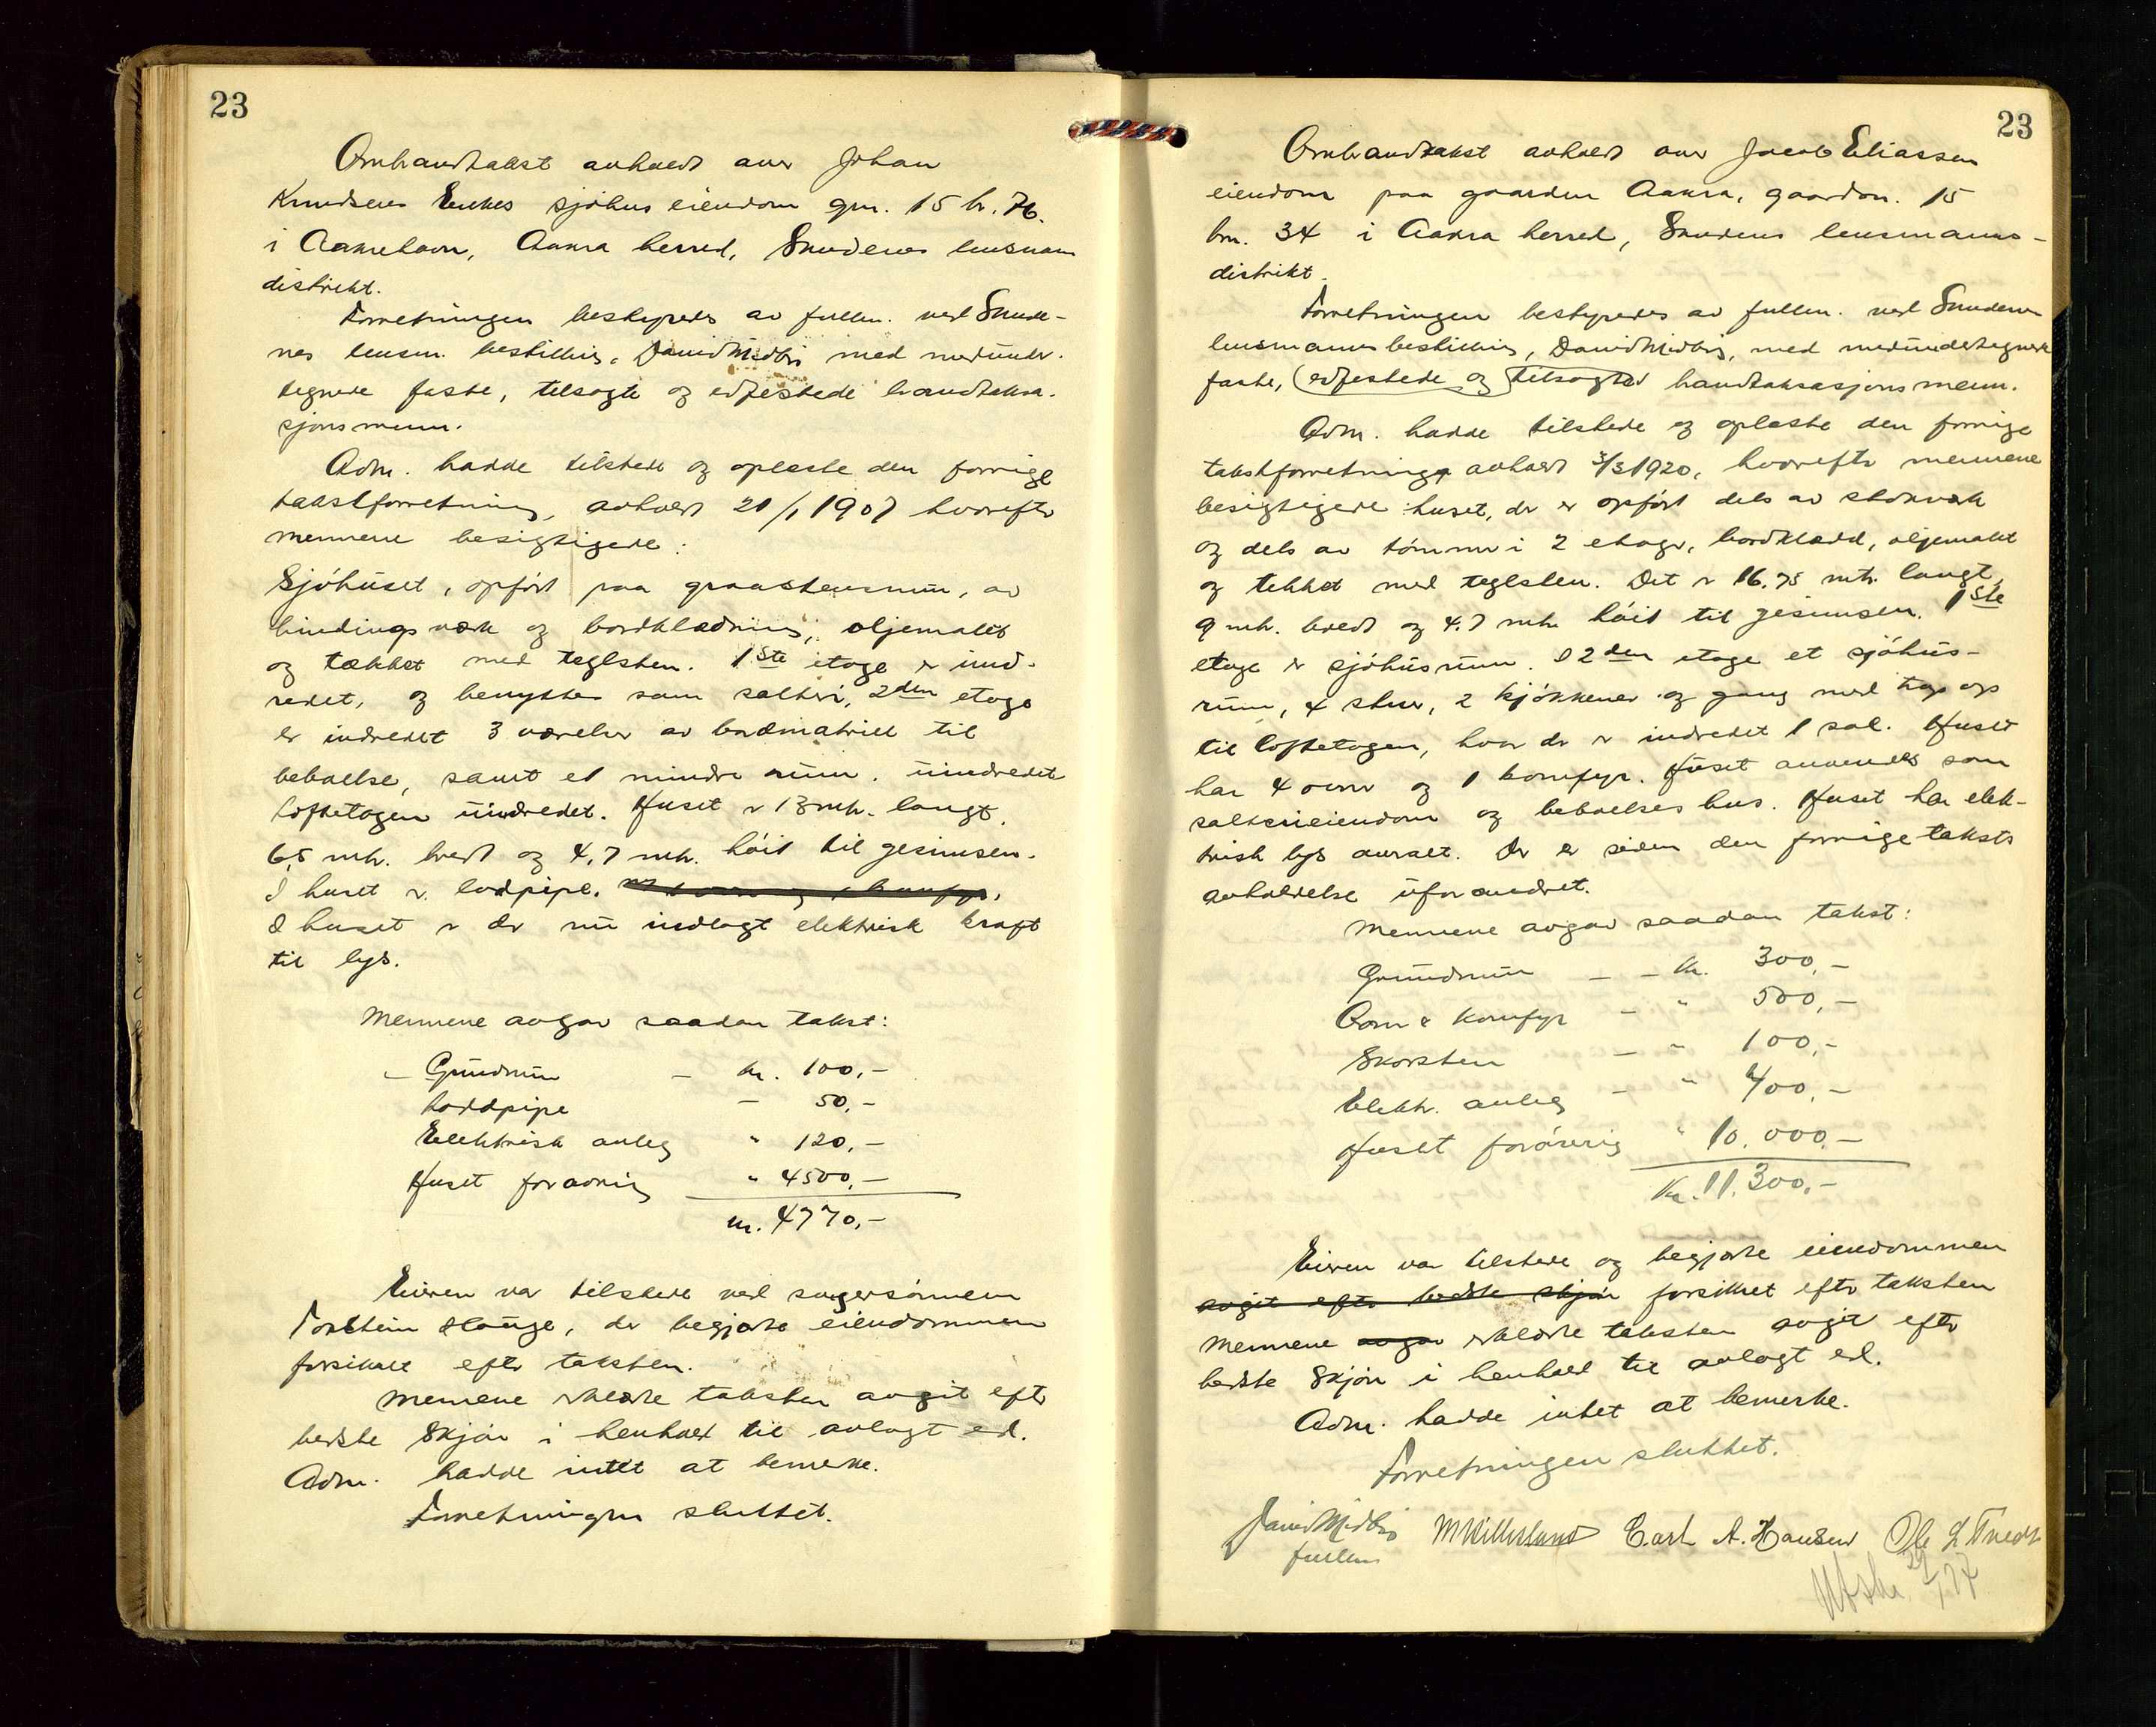 23
Ombrandtakst avholdt over Johan
Knudsens Enkes sjøhus eiendom gnr. 15 br. 76.
i Aakrehavn, Aakra herred, Skudenes lensmans
distrikt.
Forretningen bestyredes av fullm. ved Skude-
nes lensm. bestilling, David Midbø med medundr.
tegnede faste, tilsagte og edfestede brandtaksa-
sjons menn.
Adm. hadde tilstede og oplæste den forrige
takstforretning, avholdt 21/1 1907 hvorefter
mennene besigtigede:
Sjøhuset, opført paa graastensmur, av
bindingsværk og bordklædning, oljemalet
og tækket med teglsten. 1ste etage er innd-
redet, og benyttes som salteri, 2den etage
er indredet 3 værelser av bordmatriell til
beboelse, samt et mindre rum. uindredet
Loftetagen uindredet. Huset er 13 mtr. langt,
6,5 mtr. bredt og 4,7 mtr. høit til gesimsen.
I huset er lodpipe.
I huset er der nu indlagt elektrisk kraft
til lys.
Mennene avgav saadan takst:
Grundmur - kr. 100,-
Loddpipe - 50,-
Elektrisk anleg " 120,-
Huset forøvrig " 4500,-
kr. 4770,-
Eieren var tilstede ved svigersønnen
Torstein Hauge, der begjærte eiendommen
forsikret efter taksten.
Mennene erklærte taksten avgit efter
bedste skjøn i henhold til avlagt ed.
Adm. hadde intet at bemerke.
Forretningen sluttet.
23
Ombrandtakst avholdt over Jacob Eliassen
eiendom paa gaarden Aakra, gaardsn. 15
bnr. 34 i Aakra herred, Skudenes lensmanns-
distrikt.
Forretningen bestyredes av fullm. ved Skudenes
lensmanns bestilling, David Midbø, med medundertegnede
faste, (edfestede og tilsagte) brandtaksasjons menn.
Adm. hadde tilstede og oplæste den forrige
takstforretning avholdt 3/3 1920, hvorefter mennene
besigtigede huset, der er opført dels av stokverk
og dels av tømmer i 2 etager, bordklædd, oljemalet
og tekket med teglsten. Det er 16.75 mtr. langt,
9 mtr. bredt og 4.7 mtr. høit til gesimsen. 1ste
etage er sjøhusrum. I 2den etage et sjøhus-
rum, 4 stuer, 2 kjøkkener og gang med trap op
til loftetagen, hvor der er indredet 1 sal. Huset
har 4 ovner og 1 komfyr. Huset anvendes som
salterieiendom og beboelses hus. Huset har elek-
trisk lys overalt. Der er siden den forrige taksts
avholdelse uforandret.
Mennene avgav saadan takst:
Grundmur - - kr. 300,-
Ovn & Komfyr - " 500,-
Skorsten - " 100,-
Elektr. anleg - " 400,-
Huset forøvrig " 10.000,-
Kr. 11.300,-
Eieren var tilstede og begjærte eiendommen
avgit efter bedste skjøn forsikret efter taksten
Mennene avgav erklærte taksten avgit efter
bedste skjøn i henhold til avlagt ed.
Adm. hadde intet at bemerke.
Forretningen sluttet.
David Midbø M Hillesland Carl A. Hansen Ole L Tvedt
fullm